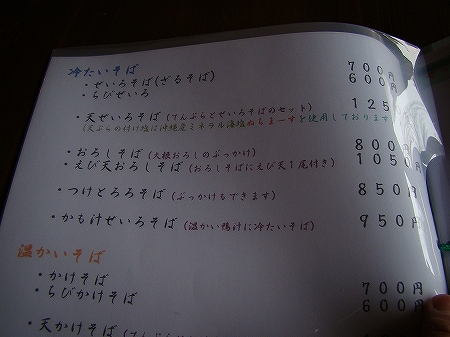 冷たいそば
・せいろそば(ざるそば) 700円
・ちびせいろ 600円
・天せいろそば(てんぷらとせいろそばのセット) 125
(天ぷらの付け塩は沖縄産ミネラル海塩ぬちまーすを使用しております
・おろしそば(大根おろしのぶっかけ) 800円
・えび天おろしそば(おろしそばにえび天1尾付き) 1050円
・つけとろろそば(ぶっかけもできます) 850円
・かもけせいろそば(温かい鴨汁に冷たいそば) 950円
温かいそば
・かけそば 700円
・ちびかけそば 600円
・天かけそば